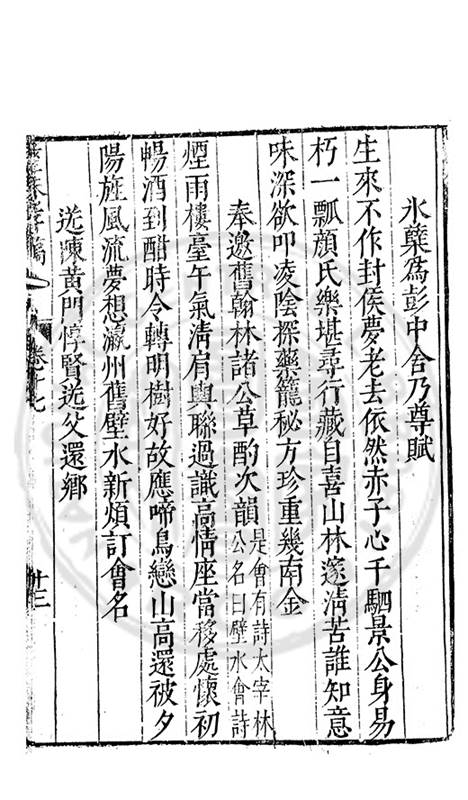 氷蘖為彭中舍乃尊賦
生來不作封侯夢老去依然赤子心千駟景公身易
朽一瓢顏氏樂堪尋行藏自喜山林邃清苦誰知意
味深欲叩凌陰探藥籠秘方珍重幾南金
奉邀舊翰林諸公草酌次韻是會有詩太宰林
公名曰壁水會詩
煙雨樓臺午氣清肩輿聯過識高情座當移處懷初
暢酒到酣時令轉明樹好故應啼鳥戀山高還被夕
陽旌風流夢想瀛州舊壁水新煩訂會名
送陳黃門惇賢送父還鄉
卷十七
十三